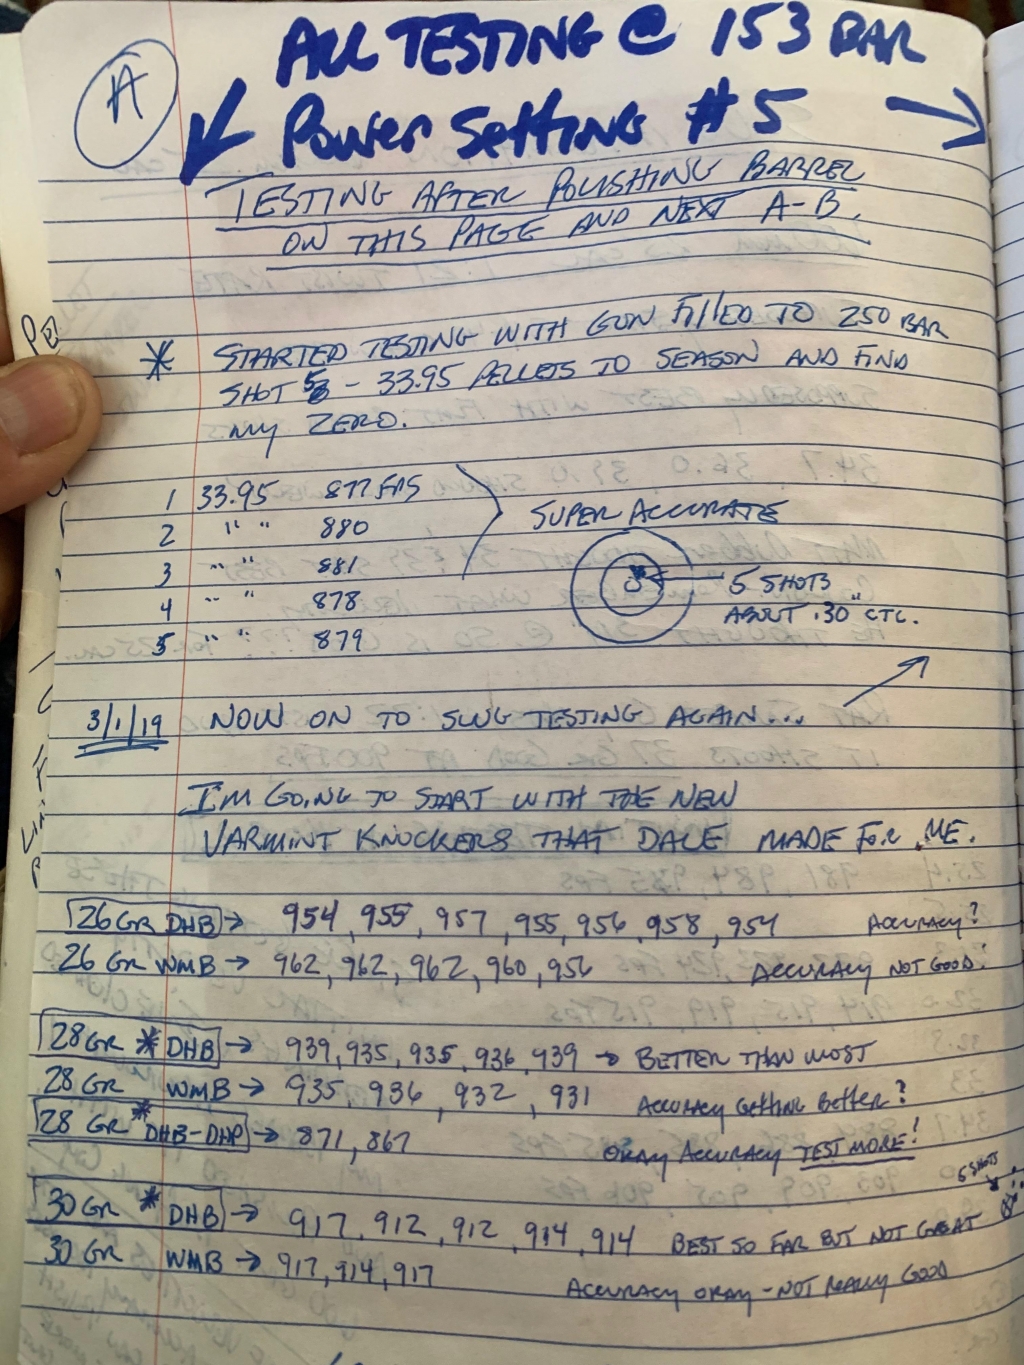 A
ALL TESTING @ 153 BAR
POWER SETTING #5
TESTING AFTER POLISHING BARREL
ON THIS PAGE AND NEXT A-B.
* STARTED TESTING WITH GUN FILLED TO 250 BAR
SHOT 5 - 33.95 PELLETS TO SEASON AND FIND
MY ZERO.
1 33.95 877 FPS
2 " " 880
3 " " 881
4 " " 878
5 " " 879
SUPER ACCURATE
5 SHOTS
ABOUT .30" CTC.
3/1/19 NOW ON TO SLUG TESTING AGAIN...
I'M GOING TO START WITH THE NEW
VARMINT KNOCKERS THAT DALE MADE FOR ME.
26 GR DHB → 954, 955, 957, 955, 956, 958, 954 ACCURACY?
26 GR WMB → 962, 962, 962, 960, 956 ACCURACY NOT GOOD!
28 GR * DHB → 939, 935, 935, 936, 939 → BETTER THAN MOST
28 GR WMB → 935, 936, 932, 931 ACCURACY GETTING BETTER?
28 GR * DHB-DHP → 871, 867 OKAY ACCURACY TEST MORE!
5 SHOTS
30 GR * DHB → 917, 912, 912, 914, 914 BEST SO FAR BUT NOT GREAT
30 GR WMB → 917, 914, 917 ACCURACY OKAY - NOT REALLY GOOD